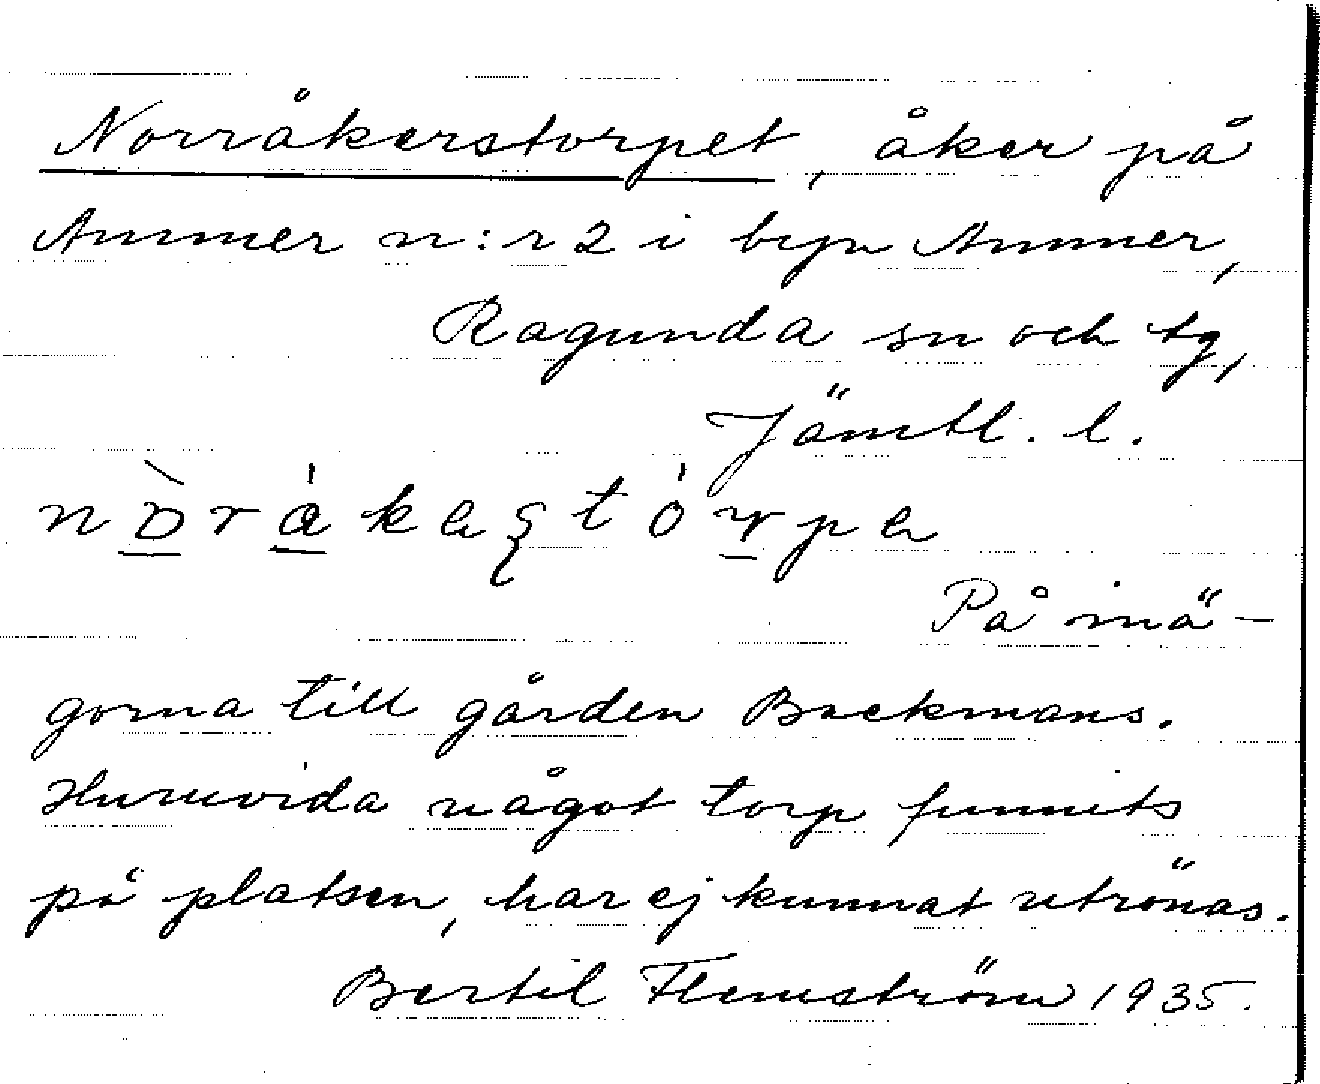 Norråkerstorpet, åker på
Ammer n:r 2 i byn Ammer,
Ragunda sn och tg,
Jämtl. l.
På inä-
gorna till gården Backmans.
Huruvida något torp funnits
på platsen, har ej kunnat utrönas.
Bertil Flemström 1935.